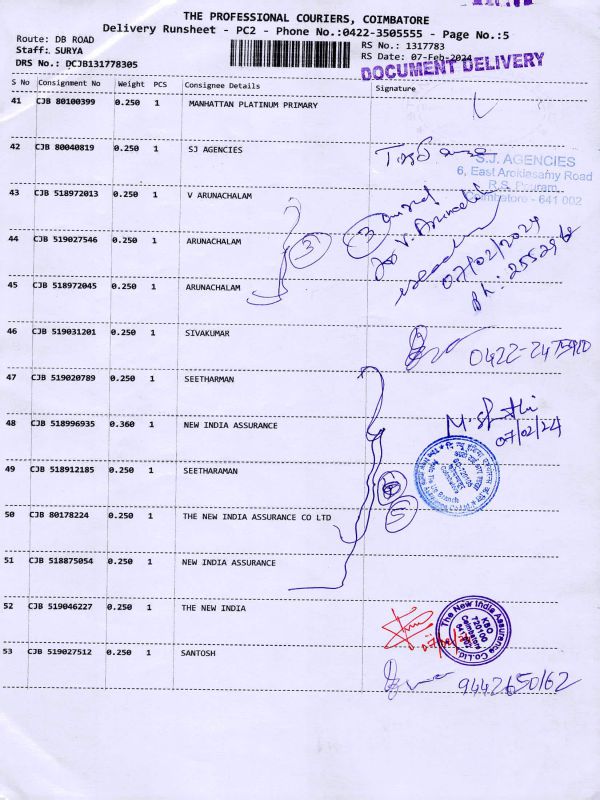 THE PROFESSIONAL COURIERS, COIMBATORE
Delivery Runsheet - PC2 - Phone No.:0422-3505555 - Page No.:5
Route: DB ROAD
Staff: SURYA
DRS No.: DCJB131778305
RS No.: 1317783
RS Date: 07-Feb-2024
DOCUMENT DELIVERY
S No Consignment No Weight PCS Consignee Details Signature
41 CJB 80100399 0.250 1 MANHATTAN PLATINUM PRIMARY
42 CJB 80040819 0.250 1 SJ AGENCIES
S.J. AGENCIES
6, East Arokiasamy Road
R.S. Puram,
Coimbatore - 641 002
43 CJB 518972013 0.250 1 V ARUNACHALAM
3 3 V. Arunachalam
44 CJB 519027546 0.250 1 ARUNACHALAM
07/02/2024
45 CJB 518972045 0.250 1 ARUNACHALAM
46 CJB 519031201 0.250 1 SIVAKUMAR
0422-2475910
47 CJB 519020789 0.250 1 SEETHARMAN
48 CJB 518996935 0.360 1 NEW INDIA ASSURANCE
07/02/24
49 CJB 518912185 0.250 1 SEETHARAMAN
5
50 CJB 80178224 0.250 1 THE NEW INDIA ASSURANCE CO LTD
51 CJB 518875054 0.250 1 NEW INDIA ASSURANCE
52 CJB 519046227 0.250 1 THE NEW INDIA
The New India Assurance Co. Ltd.
KBO
720100
Coimbatore
53 CJB 519027512 0.250 1 SANTOSH
9442650162